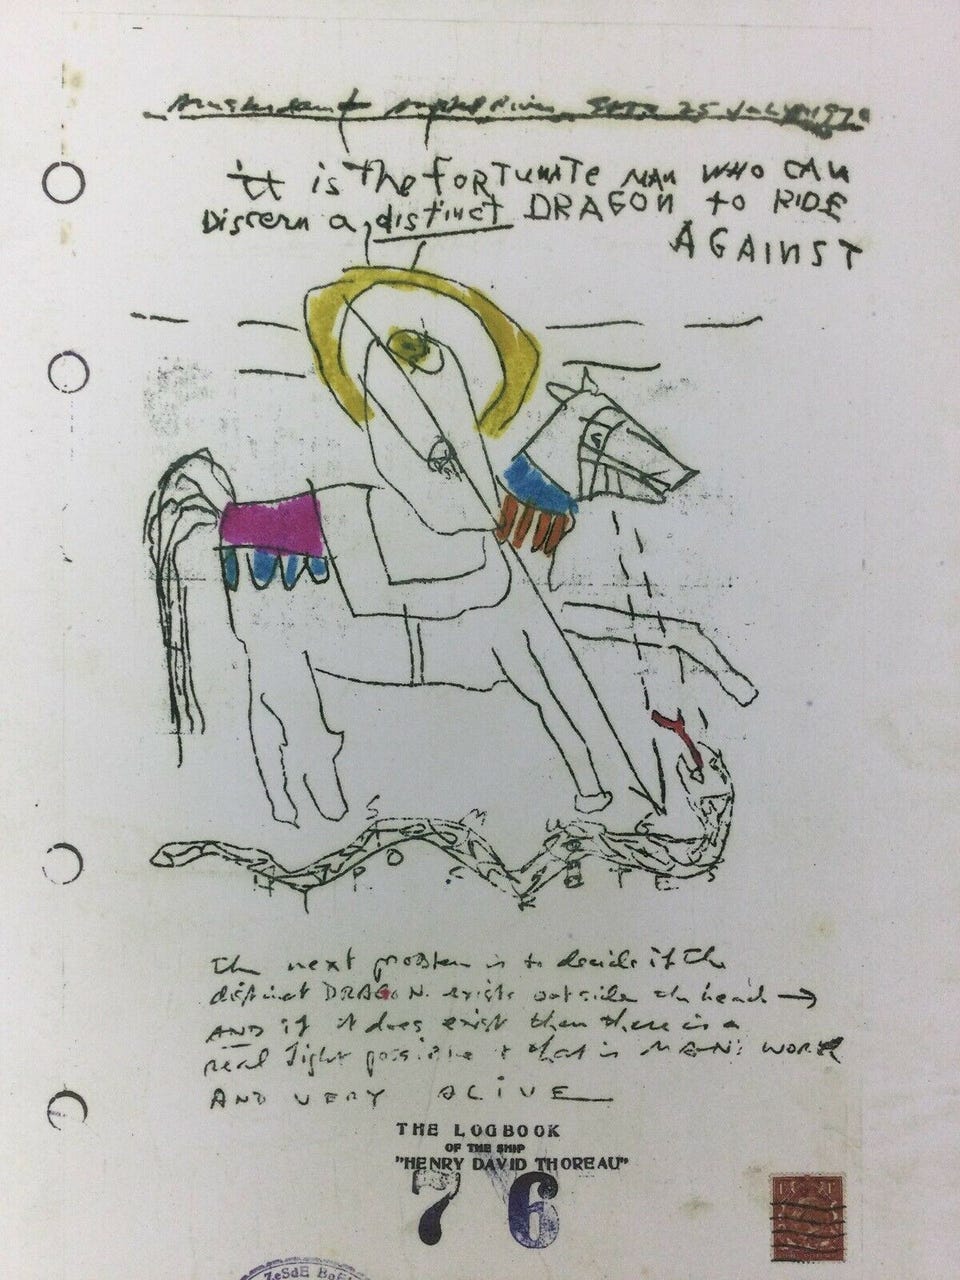 Amsterdam Amstel River 25 July 1970
it is the FORTUNATE MAN WHO CAN
Discern a distinct DRAGON to RIDE
AGAINST
the next problem is to decide if the
distinct DRAGON exists outside the head →
AND if it does exist then there is a
real fight possible & that is MAN'S WORK
AND VERY ALIVE
THE LOGBOOK
OF THE SHIP
"HENRY DAVID THOREAU"
76
ZeSdE